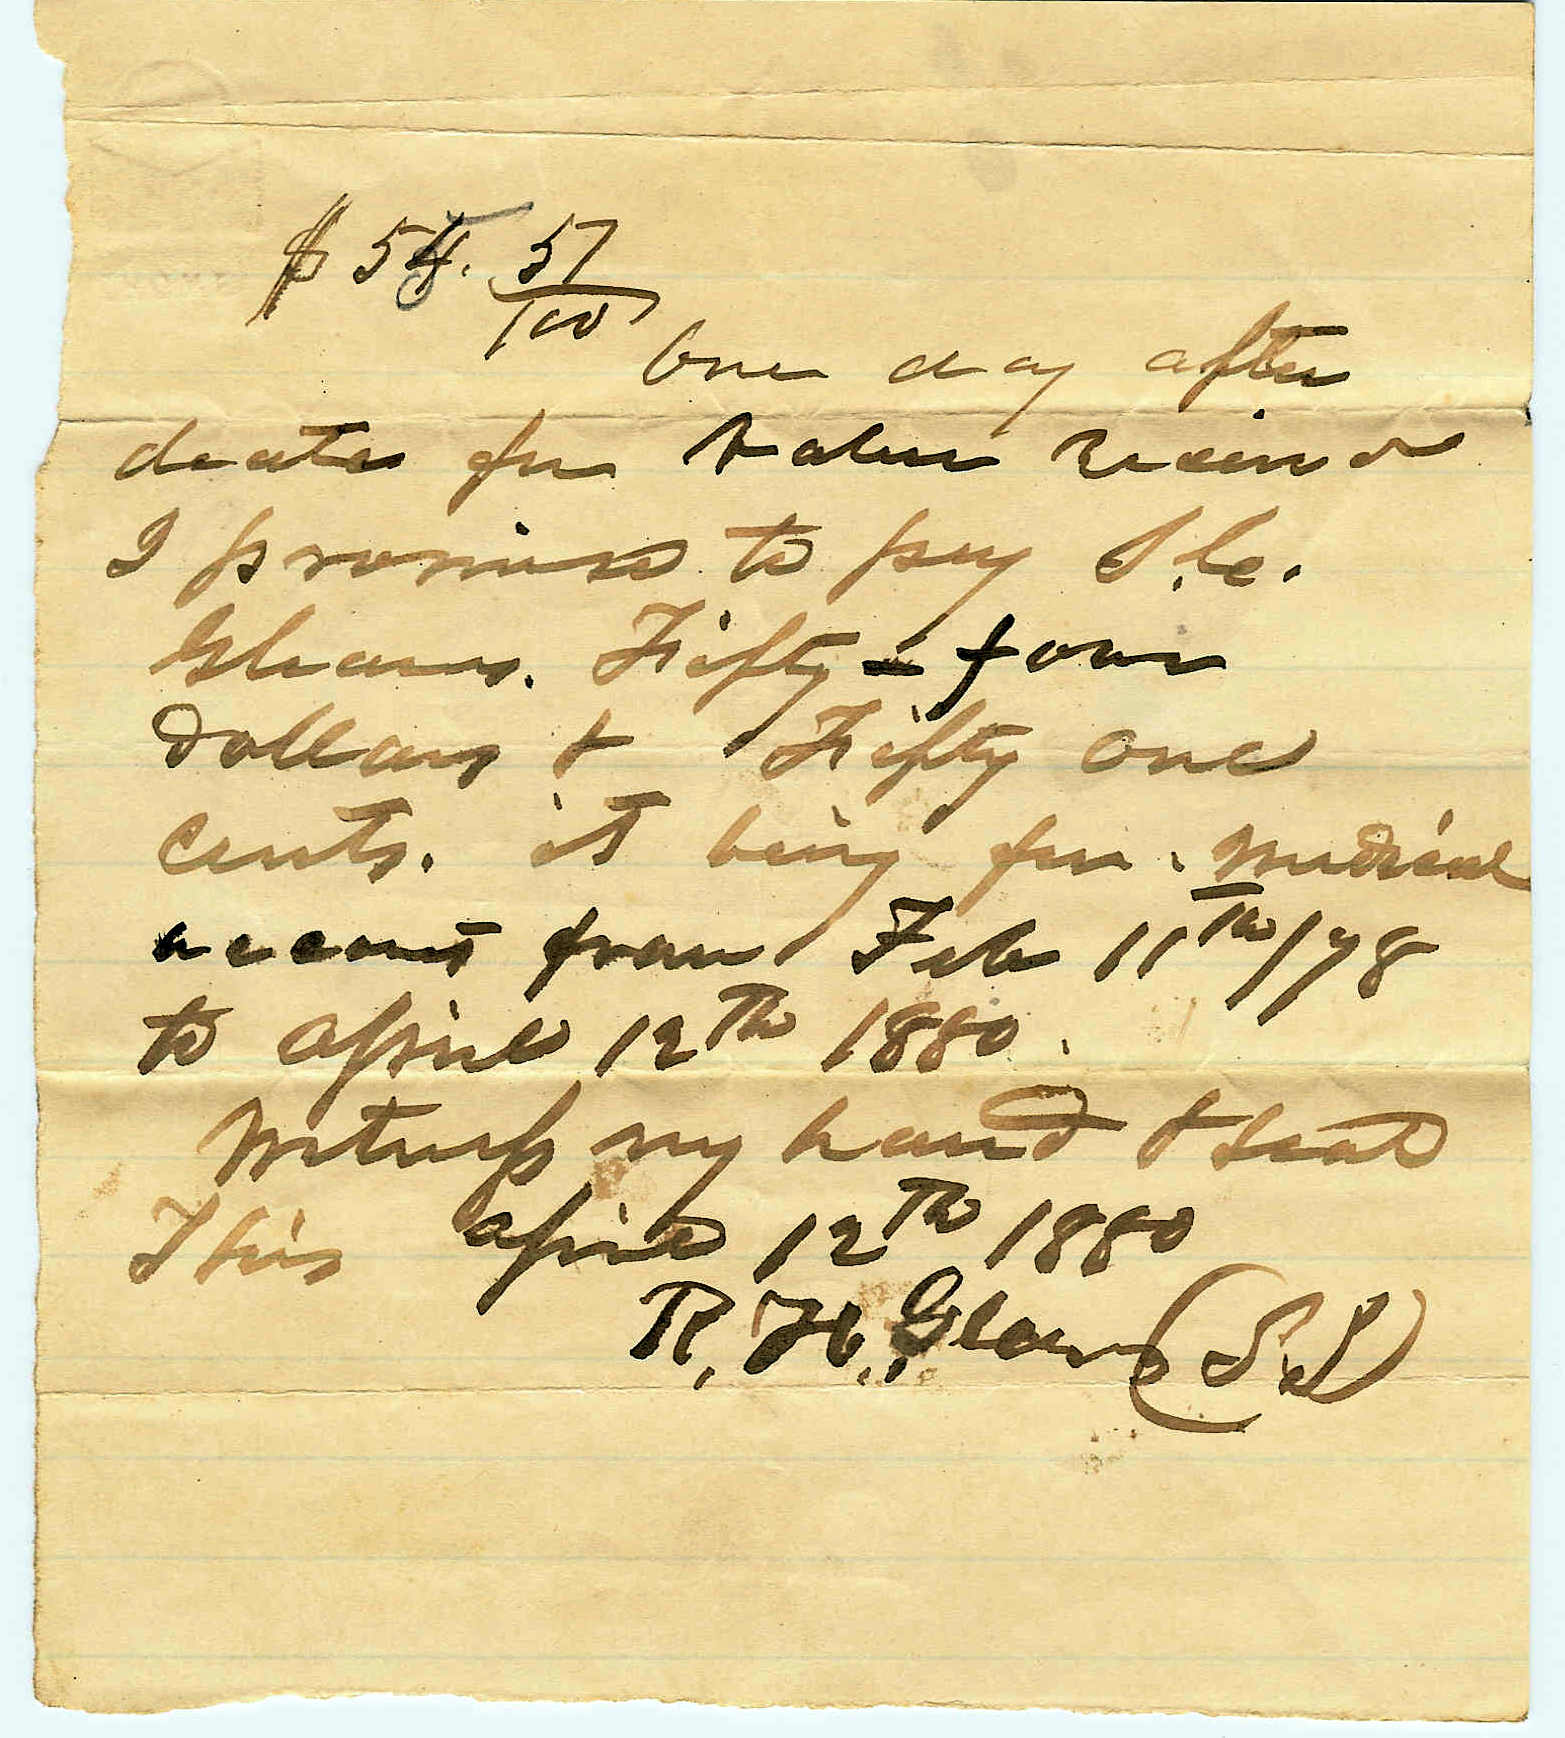 $ 54. 51/100
One day after
date for Value Received
I promise to pay S. C.
Fifty - four
Dollars & Fifty one
Cents. it being for Medical
account from Feb 11th/78
to April 12th 1880.
Witness my hand & seal
This April 12th 1880
R. H. (S.S)